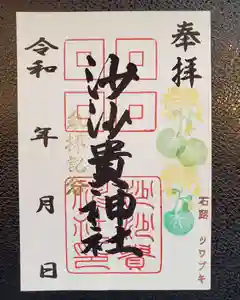 奉拝
沙沙貴神社
令和 年 月 日
参拝記念
石蕗 ツワブキ